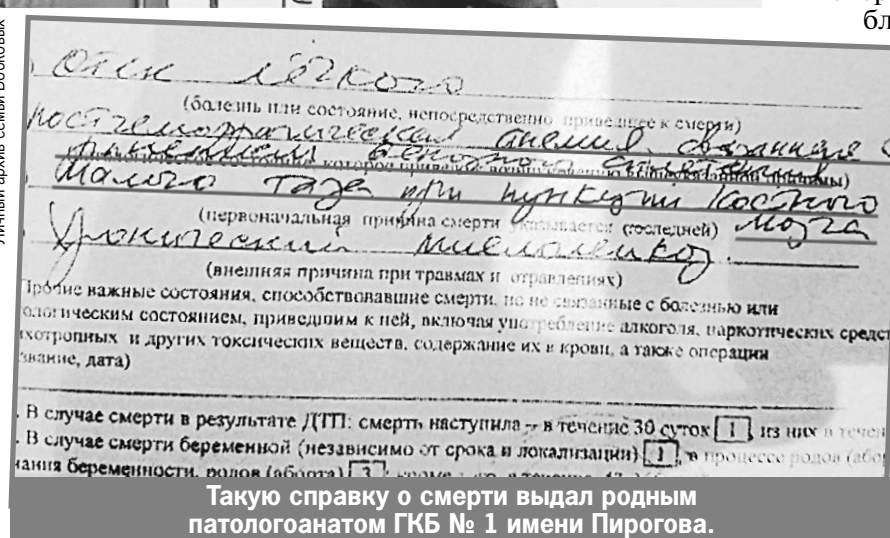 бл
Личный архив семьи Бобковых
Отек лёгкого
(болезнь или состояние, непосредственно приведшее к смерти)
постгеморрагическая анемия, связанная с
ранением венозного сплетения
малого таза при пункции костного
(первоначальная причина смерти указывается последней) мозга
Хронический миелолейкоз.
(внешняя причина при травмах и отравлениях)
Прочие важные состояния, способствовавшие смерти, но не связанные с болезнью или
ологическим состоянием, приведшим к ней, включая употребление алкоголя, наркотических средст
хотропных и других токсических веществ, содержание их в крови, а также операции
звание, дата)
. В случае смерти в результате ДТП: смерть наступила – в течение 30 суток 1 из них в течен
. В случае смерти беременной (независимо от срока и локализации) 1, в процессе родов (абор
чания беременности, родов (аборта) 3
Такую справку о смерти выдал родным
патологоанатом ГКБ № 1 имени Пирогова.